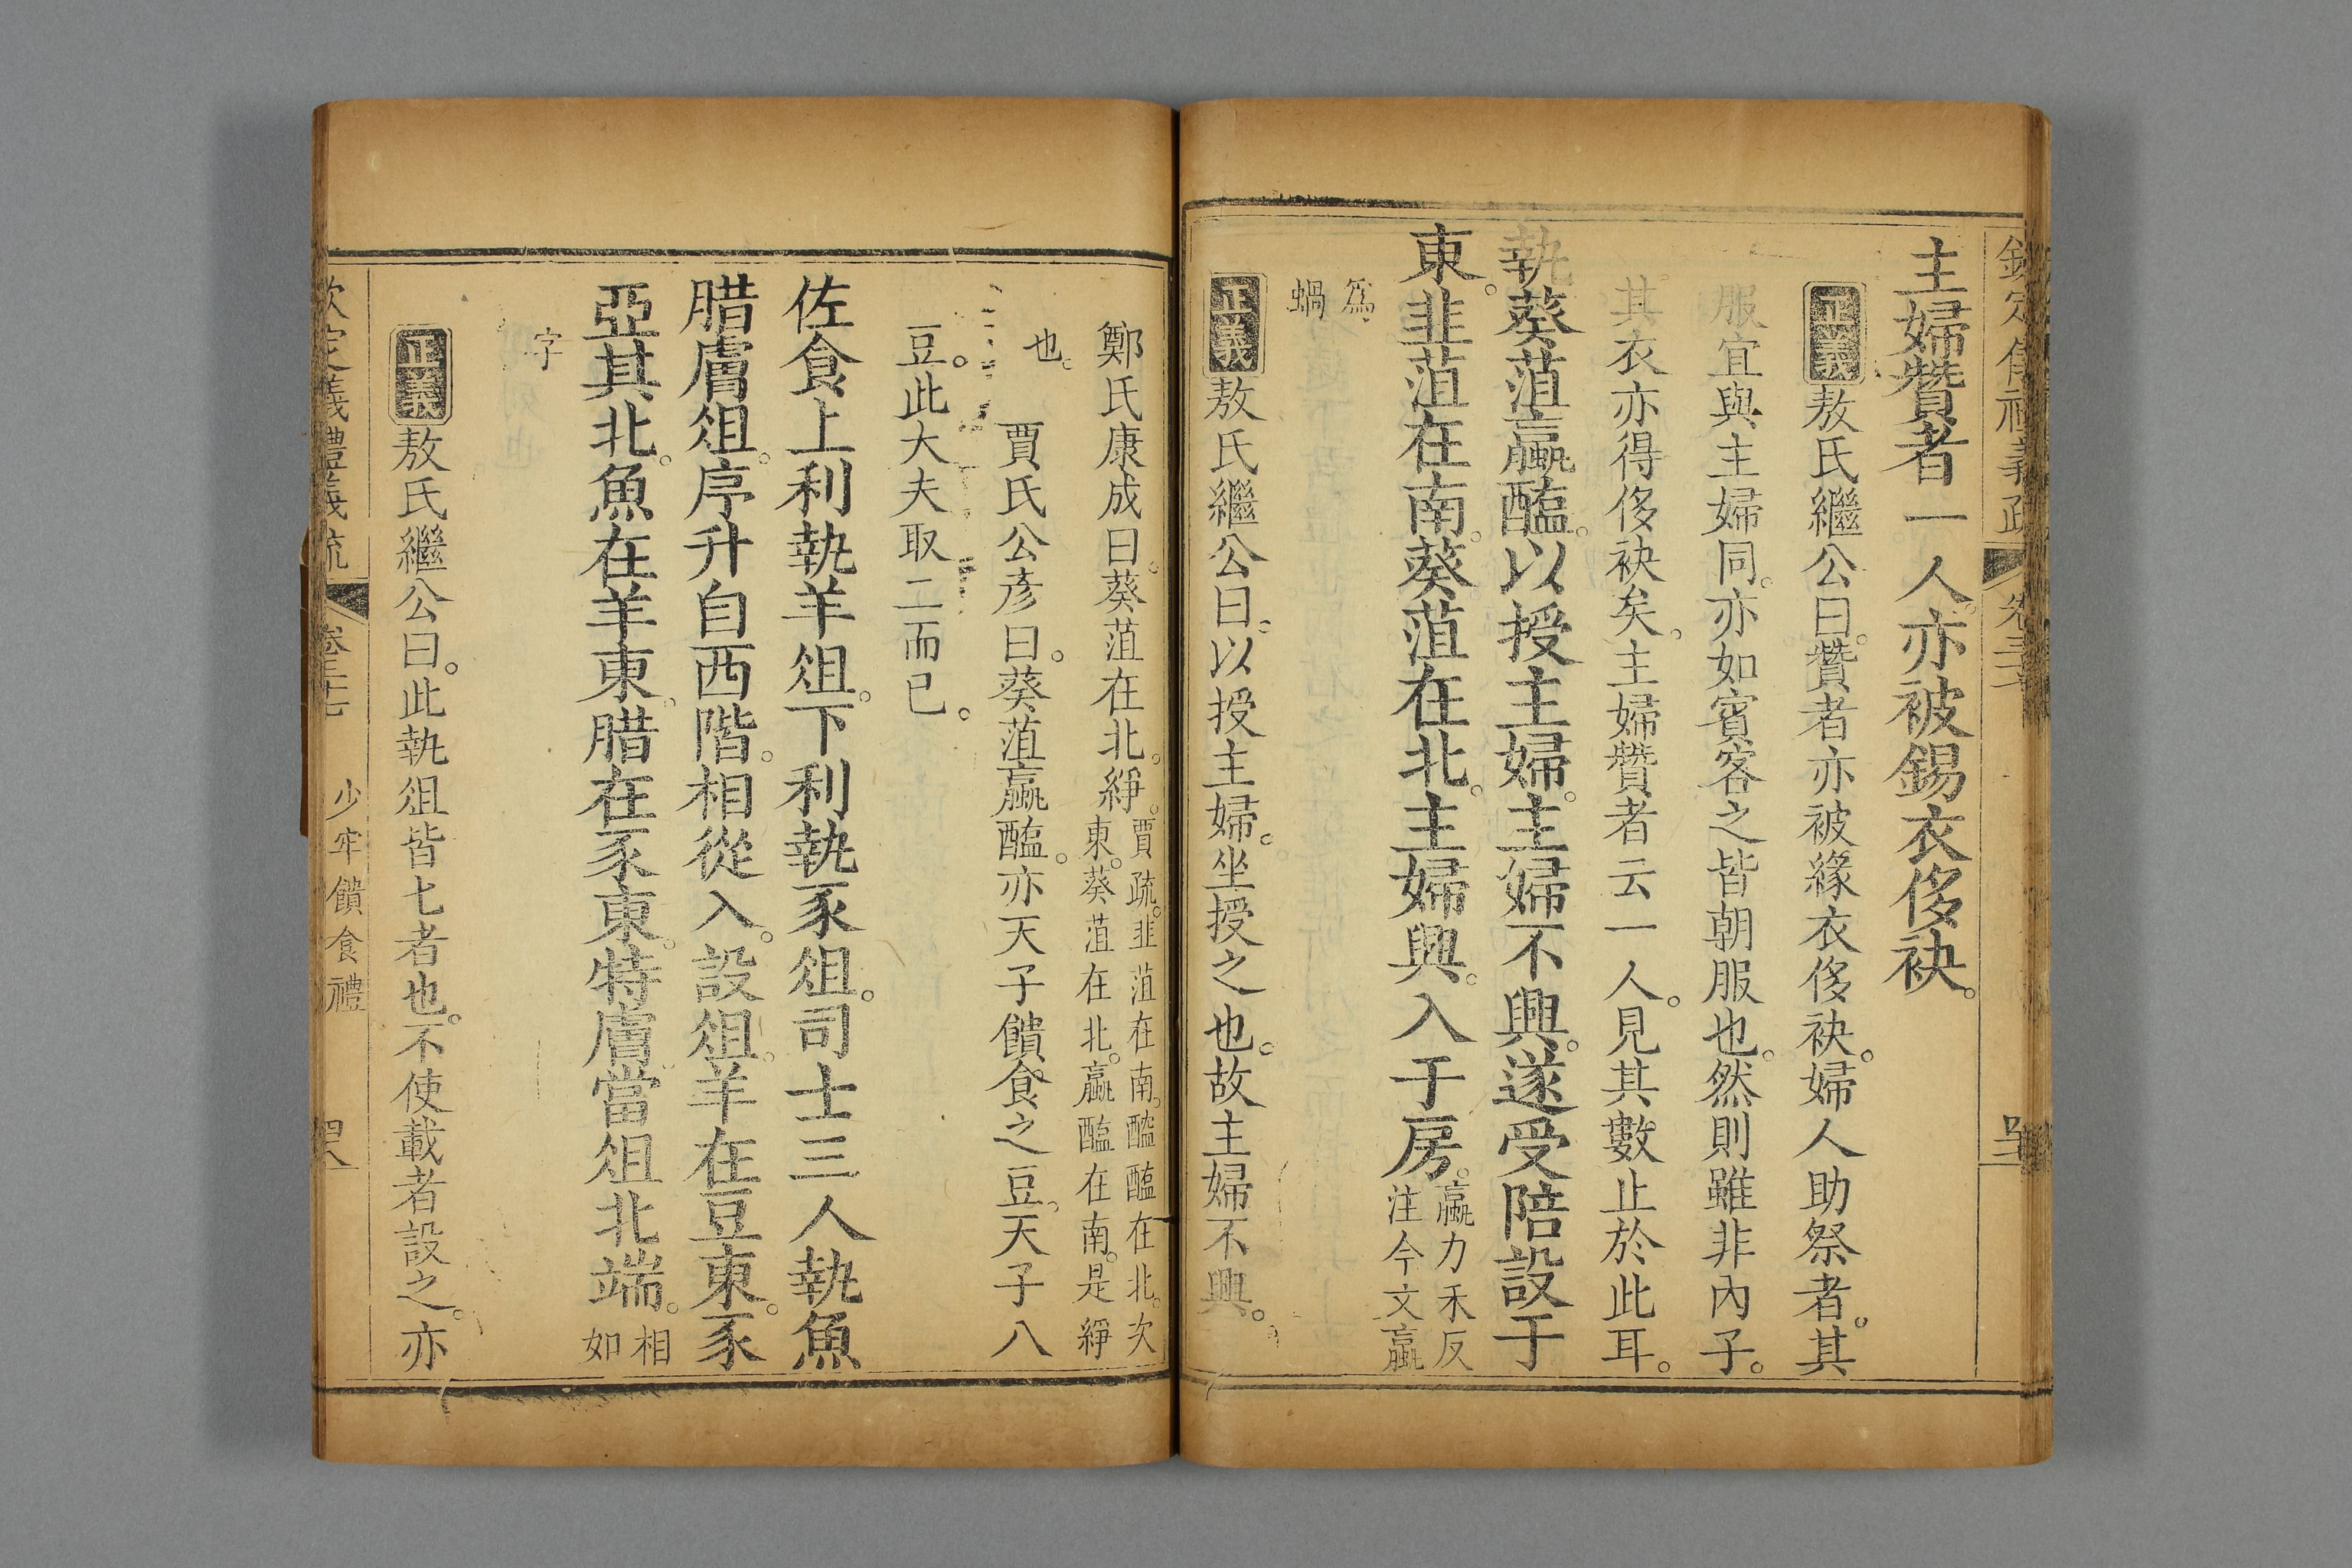 主婦贊者一人。亦被錫衣侈袂。
正義敖氏繼公曰。贊者亦被緣衣侈袂。婦人助祭者。其
服宜與主婦同。亦如賓客之皆朝服也。然則雖非內子。
其衣亦得侈袂矣。主婦贊者云一人。見其數止於此耳。
執葵菹蠃醢。以授主婦。主婦不興。遂受陪設于
東。韭菹在南。葵菹在北。主婦興。入于房。蠃力禾反
注今文蠃
爲
蝸
正義敖氏繼公曰。以授主婦。坐授之也。故主婦不興。
鄭氏康成曰。葵菹在北。綪。賈疏。韭菹在南。醓醢在北。次
東。葵菹在北。蠃醢在南。是綪
也。賈氏公彥曰。葵菹蠃醢。亦天子饋食之豆。天子八
豆。此大夫取二而已。
佐食上利執羊俎。下利執豕俎。司士三人執魚
腊膚俎。序升自西階。相從入。設俎。羊在豆東。豕
亞其北。魚在羊東。腊在豕東。特膚當俎北端。相
如
字
正義敖氏繼公曰。此執俎皆七者也。不使載者設之。亦
欽定儀禮義疏 少牢饋食禮